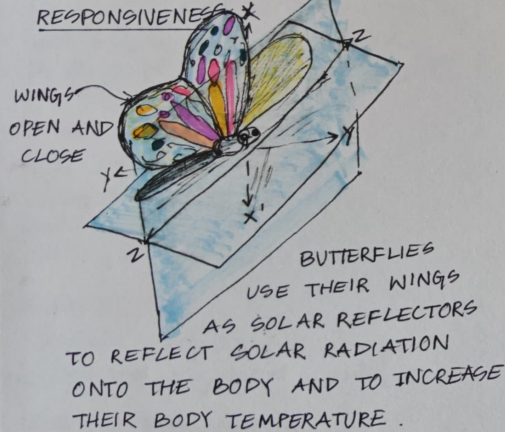 RESPONSIVENESS
X
Z
WINGS
OPEN AND
CLOSE
Y
Y
X'
Z
BUTTERFLIES
USE THEIR WINGS
AS SOLAR REFLECTORS
TO REFLECT SOLAR RADIATION
ONTO THE BODY AND TO INCREASE
THEIR BODY TEMPERATURE.